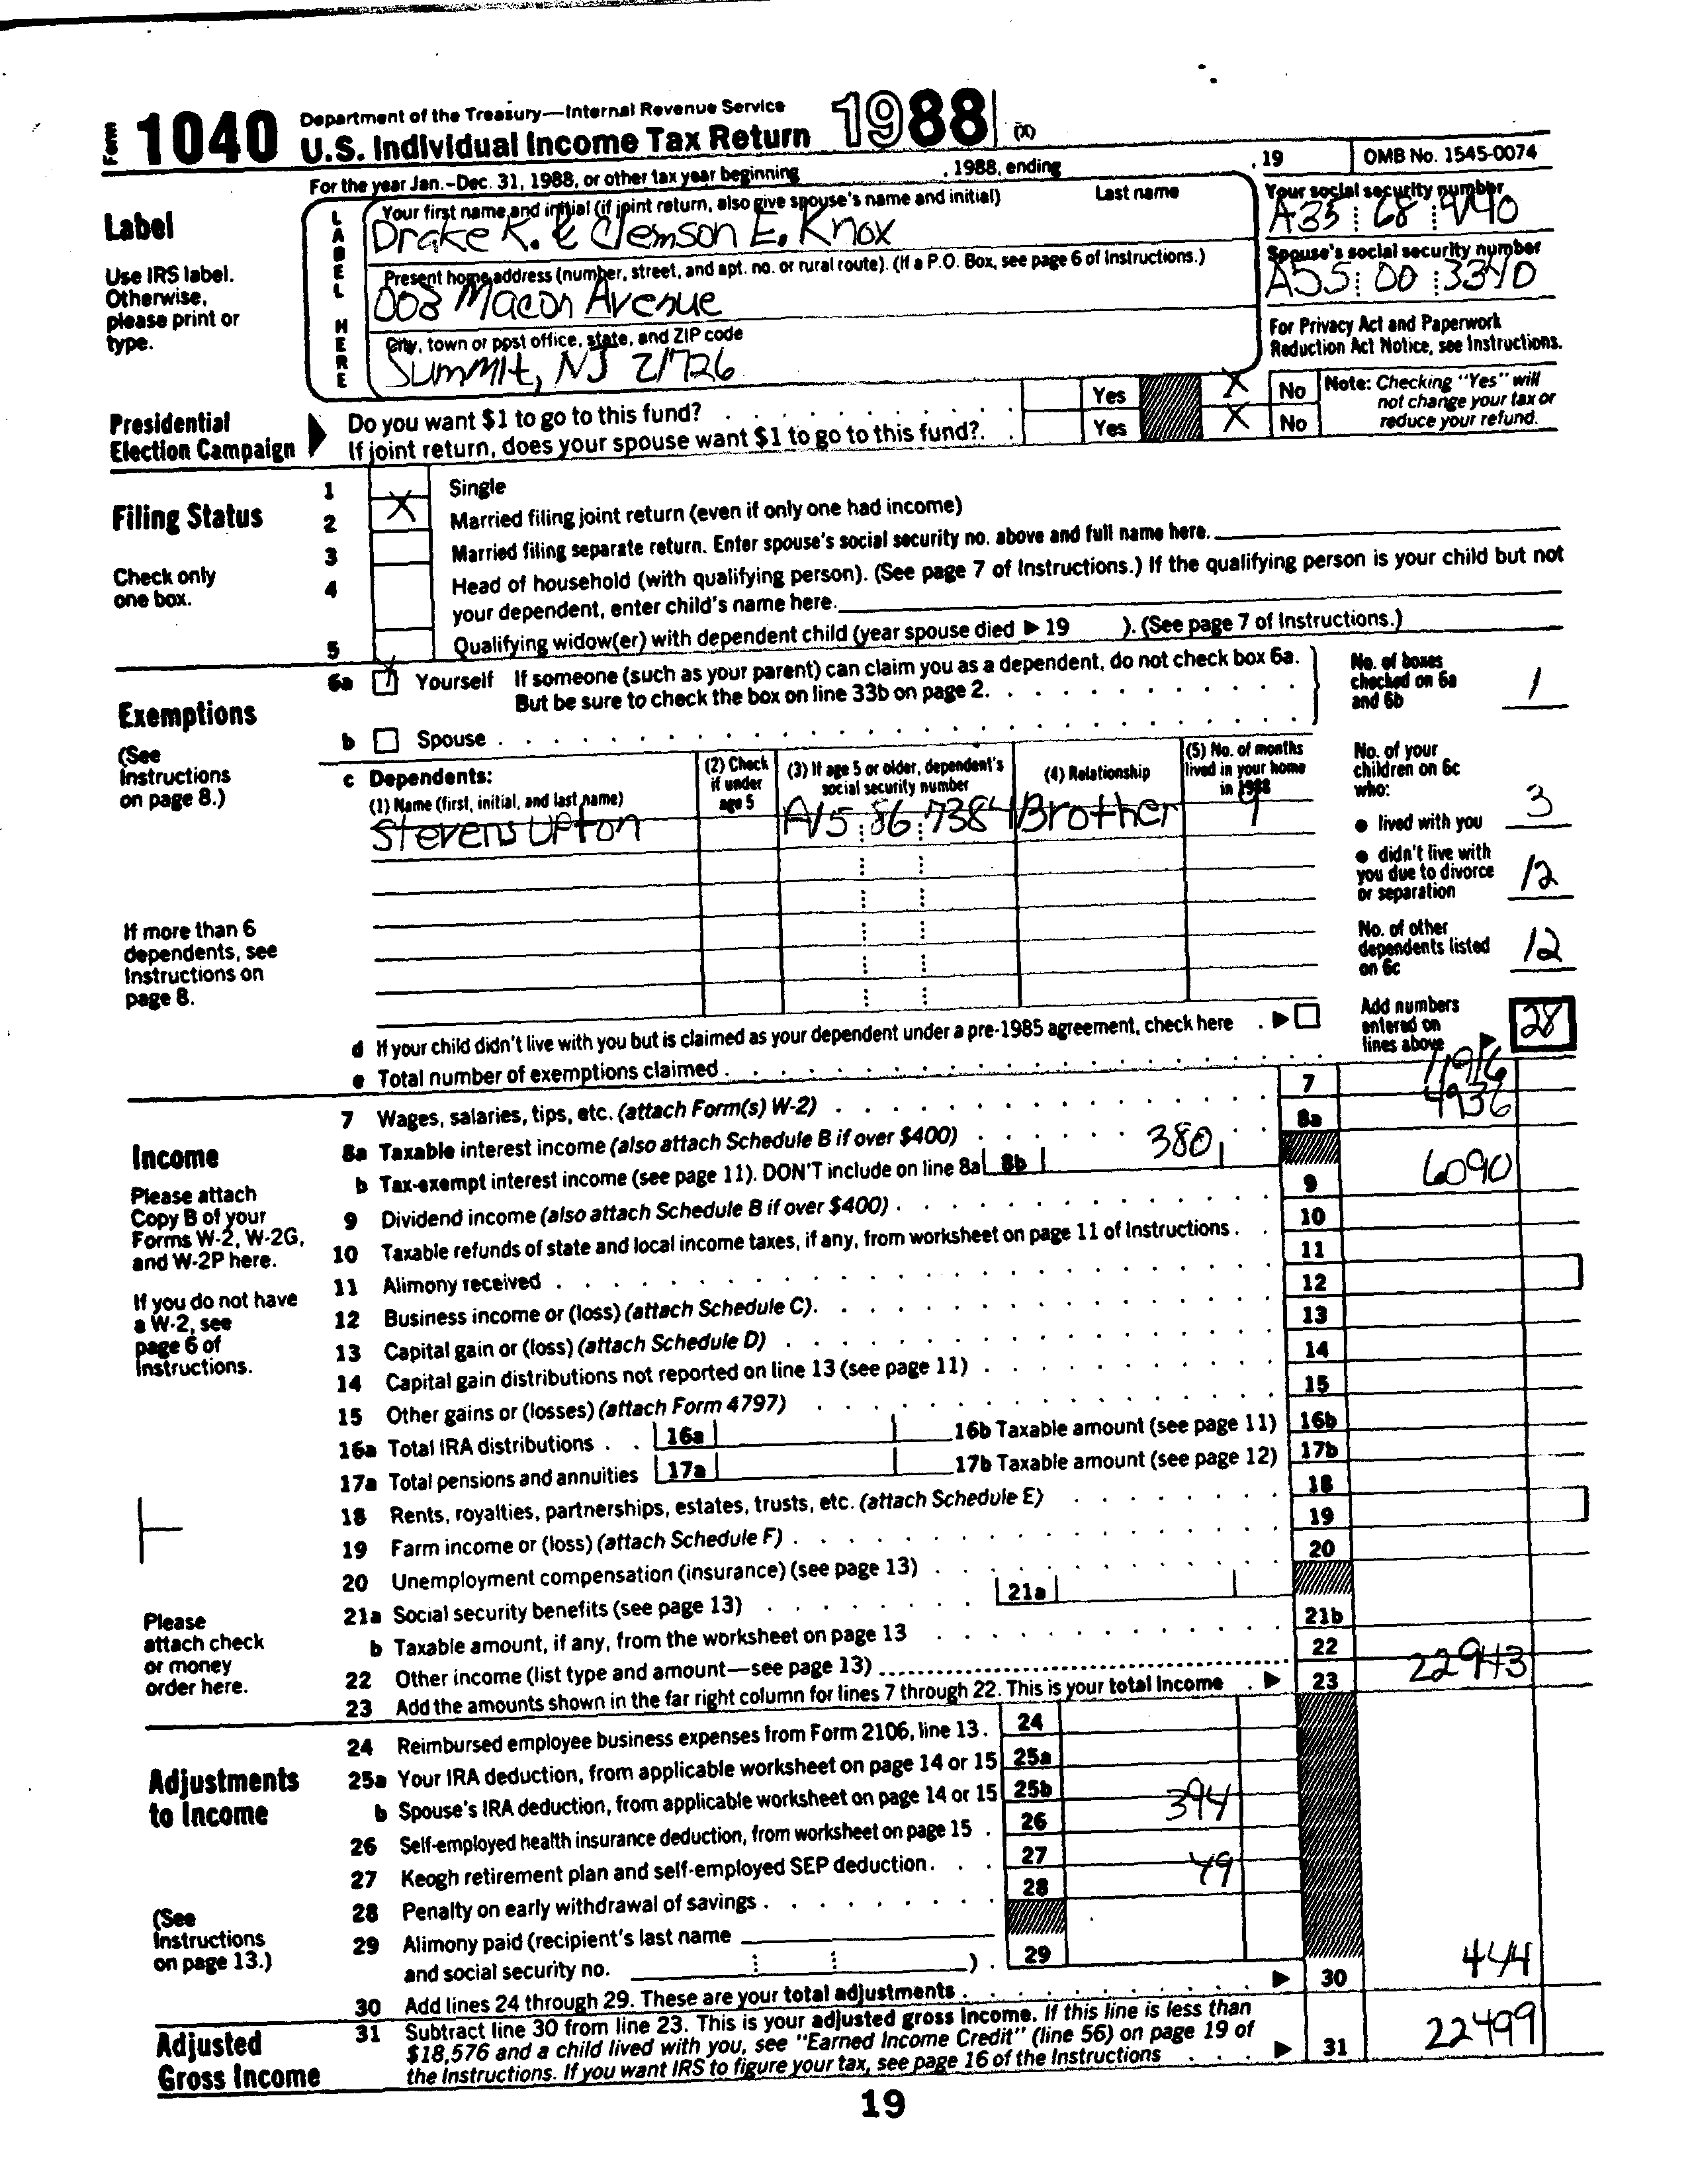 Form 1040 Department of the Treasury—Internal Revenue Service
U.S. Individual Income Tax Return 1988 (X)
For the year Jan.-Dec. 31, 1988, or other tax year beginning , 1988, ending , 19 OMB No. 1545-0074
Label
Use IRS label.
Otherwise,
please print or
type.
LABEL HERE
Your first name and initial (if joint return, also give spouse's name and initial) Last name
Drake K. & Clemson E. Knox
Your social security number
A35 68
Present home address (number, street, and apt. no. or rural route). (If a P.O. Box, see page 6 of Instructions.)
003 Macon Avenue
Spouse's social security number
A55 00 3340
City, town or post office, state, and ZIP code
Summit, NJ 21726
For Privacy Act and Paperwork
Reduction Act Notice, see Instructions.
Presidential
Election Campaign
Do you want $1 to go to this fund? Yes X No
If joint return, does your spouse want $1 to go to this fund? Yes X No
Note: Checking "Yes" will
not change your tax or
reduce your refund.
Filing Status
Check only
one box.
1 Single
2 X Married filing joint return (even if only one had income)
3 Married filing separate return. Enter spouse's social security no. above and full name here.
4 Head of household (with qualifying person). (See page 7 of Instructions.) If the qualifying person is your child but not
your dependent, enter child's name here.
5 Qualifying widow(er) with dependent child (year spouse died ▶ 19 ). (See page 7 of Instructions.)
Exemptions
(See
Instructions
on page 8.)
If more than 6
dependents, see
Instructions on
page 8.
6a X Yourself If someone (such as your parent) can claim you as a dependent, do not check box 6a.
But be sure to check the box on line 33b on page 2.
b Spouse
No. of boxes
checked on 6a
and 6b 1
c Dependents:
(1) Name (first, initial, and last name)
(2) Check
if under
age 5
(3) If age 5 or older, dependent's
social security number
(4) Relationship
(5) No. of months
lived in your home
in 1988
Stevens Upton A15 86 7384 Brother 9
No. of your
children on 6c
who:
● lived with you 3
● didn't live with
you due to divorce
or separation 12
No. of other
dependents listed
on 6c 12
d If your child didn't live with you but is claimed as your dependent under a pre-1985 agreement, check here ▶
e Total number of exemptions claimed
Add numbers
entered on
lines above ▶ 28
Income
Please attach
Copy B of your
Forms W-2, W-2G,
and W-2P here.
If you do not have
a W-2, see
page 6 of
Instructions.
Please
attach check
or money
order here.
7 Wages, salaries, tips, etc. (attach Form(s) W-2) 7 11916
8a Taxable interest income (also attach Schedule B if over $400) 8a 4936
b Tax-exempt interest income (see page 11). DON'T include on line 8a 8b 380
9 Dividend income (also attach Schedule B if over $400) 9 6090
10 Taxable refunds of state and local income taxes, if any, from worksheet on page 11 of Instructions 10
11 Alimony received 11
12 Business income or (loss) (attach Schedule C) 12
13 Capital gain or (loss) (attach Schedule D) 13
14 Capital gain distributions not reported on line 13 (see page 11) 14
15 Other gains or (losses) (attach Form 4797) 15
16a Total IRA distributions 16a 16b Taxable amount (see page 11) 16b
17a Total pensions and annuities 17a 17b Taxable amount (see page 12) 17b
18 Rents, royalties, partnerships, estates, trusts, etc. (attach Schedule E) 18
19 Farm income or (loss) (attach Schedule F) 19
20 Unemployment compensation (insurance) (see page 13) 20
21a Social security benefits (see page 13) 21a
b Taxable amount, if any, from the worksheet on page 13 21b
22 Other income (list type and amount—see page 13) 22
23 Add the amounts shown in the far right column for lines 7 through 22. This is your total income ▶ 23 22943
Adjustments
to Income
(See
Instructions
on page 13.)
24 Reimbursed employee business expenses from Form 2106, line 13. 24
25a Your IRA deduction, from applicable worksheet on page 14 or 15 25a
b Spouse's IRA deduction, from applicable worksheet on page 14 or 15 25b 394
26 Self-employed health insurance deduction, from worksheet on page 15 26
27 Keogh retirement plan and self-employed SEP deduction 27 49
28 Penalty on early withdrawal of savings 28
29 Alimony paid (recipient's last name
and social security no. ) 29
30 Add lines 24 through 29. These are your total adjustments ▶ 30 444
Adjusted
Gross Income
31 Subtract line 30 from line 23. This is your adjusted gross income. If this line is less than
$18,576 and a child lived with you, see "Earned Income Credit" (line 56) on page 19 of
the Instructions. If you want IRS to figure your tax, see page 16 of the Instructions ▶ 31 22499
19